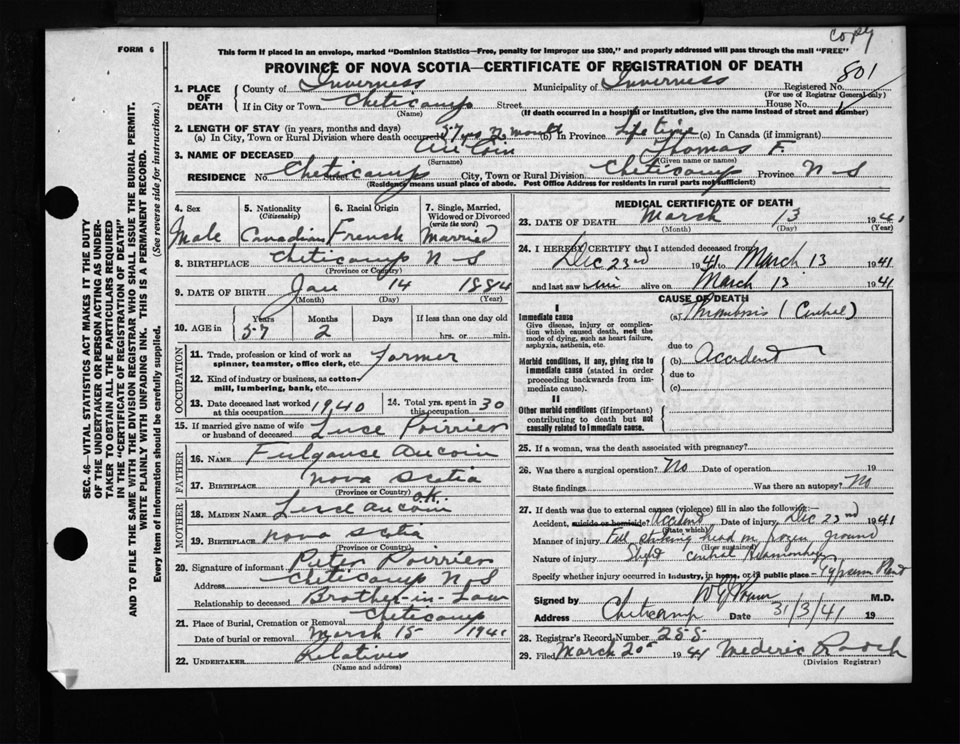 copy
FORM 6
This form if placed in an envelope, marked "Dominion Statistics—Free, penalty for improper use $300," and properly addressed will pass through the mail "FREE"
PROVINCE OF NOVA SCOTIA—CERTIFICATE OF REGISTRATION OF DEATH
801
1. PLACE OF DEATH County of Inverness Municipality of Inverness Registered No.
(For use of Registrar General only)
If in City or Town Cheticamp Street House No.
(Name) (If death occurred in a hospital or institution, give the name instead of street and number)
2. LENGTH OF STAY (in years, months and days)
(a) In City, Town or Rural Division where death occurred 57 yrs 2 month (b) In Province Life time (c) In Canada (if immigrant)
3. NAME OF DECEASED Au Coin Thomas F.
(Surname) (Given name or names)
RESIDENCE No. Cheticamp Street City, Town or Rural Division Cheticamp Province N-S
(Residence means usual place of abode. Post Office Address for residents in rural parts not sufficient)
4. Sex 5. Nationality (Citizenship) 6. Racial Origin 7. Single, Married, Widowed or Divorced (write the word)
Male Canadian French Married
8. BIRTHPLACE Cheticamp N-S
(Province or Country)
9. DATE OF BIRTH Jan 14 1884
(Month) (Day) (Year)
10. AGE in Years Months Days If less than one day old
57 2 hrs. or min.
OCCUPATION
11. Trade, profession or kind of work as spinner, teamster, office clerk, etc. Farmer
12. Kind of industry or business, as cotton mill, lumbering, bank, etc.
13. Date deceased last worked at this occupation 1940 14. Total yrs. spent in this occupation 30
15. If married give name of wife or husband of deceased Luce Poirrier
FATHER
16. NAME Fulgause Aucoin
17. BIRTHPLACE Nova Scotia
(Province or Country)
MOTHER
18. MAIDEN NAME Aucoin OK.
19. BIRTHPLACE Nova Scotia
(Province or Country)
20. Signature of informant Peter Poirrier
Address Cheticamp N-S
Relationship to deceased Brother-in-Law
21. Place of Burial, Cremation or Removal Cheticamp
Date of burial or removal March 15 1941
22. UNDERTAKER Relatives
(Name and address)
MEDICAL CERTIFICATE OF DEATH
23. DATE OF DEATH March 13 1941
(Month) (Day) (Year)
24. I HEREBY CERTIFY that I attended deceased from
Dec 23rd 1941 to March 13 1941
and last saw him alive on March 13 1941
CAUSE OF DEATH
I
Immediate cause (a) Thrombosis (
Give disease, injury or complication which caused death, not the mode of dying, such as heart failure, asphyxia, asthenia, etc.
due to
Morbid conditions, if any, giving rise to immediate cause (stated in order proceeding backwards from immediate cause). (b) Accident
due to
(c)
II
Other morbid conditions (if important) contributing to death but not causally related to immediate cause.
25. If a woman, was the death associated with pregnancy?
26. Was there a surgical operation? No Date of operation 19
State findings Was there an autopsy? No
27. If death was due to external causes (violence) fill in also the following:
Accident, suicide or homicide? Accident Date of injury Dec 23rd 1941
(State which)
Manner of injury Fall striking head on frozen ground
(How sustained)
Nature of injury Hemorrhage
Specify whether injury occurred in industry, in home, or in public place Gypsum Plant
Signed by M.D.
Address Cheticamp Date 31/3/41 19
28. Registrar's Record Number 255
29. Filed March 20th 1941 Mederic
(Division Registrar)
SEC. 46—VITAL STATISTICS ACT MAKES IT THE DUTY
OF THE UNDERTAKER OR PERSON ACTING AS UNDER-
TAKER TO OBTAIN ALL THE PARTICULARS REQUIRED
IN THE "CERTIFICATE OF REGISTRATION OF DEATH"
AND TO FILE THE SAME WITH THE DIVISION REGISTRAR WHO SHALL ISSUE THE BURIAL PERMIT.
WRITE PLAINLY WITH UNFADING INK. THIS IS A PERMANENT RECORD.
Every item of Information should be carefully supplied. (See reverse side for instructions.)